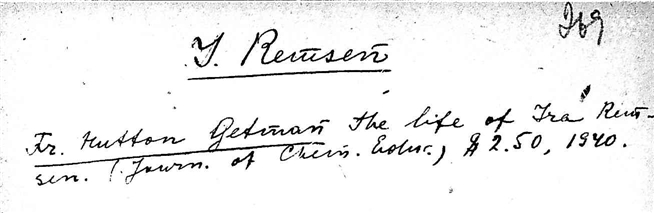 269
I. Remsen
Fr. Hutton Getman The life of Ira Rem-
sen. (Journ. of Chem. Educ.) $2.50, 1940.